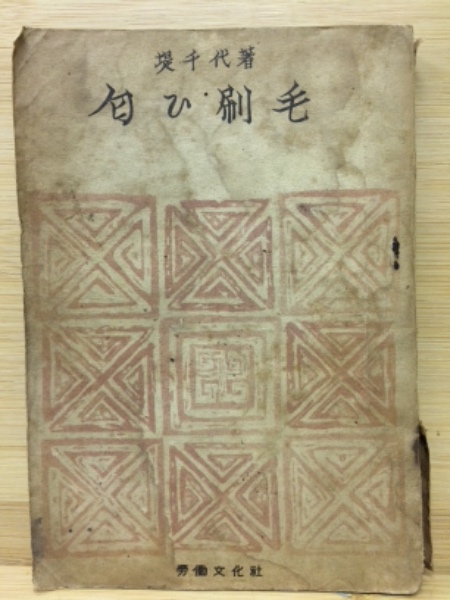 堤千代著
匂ひ刷毛
労働文化社